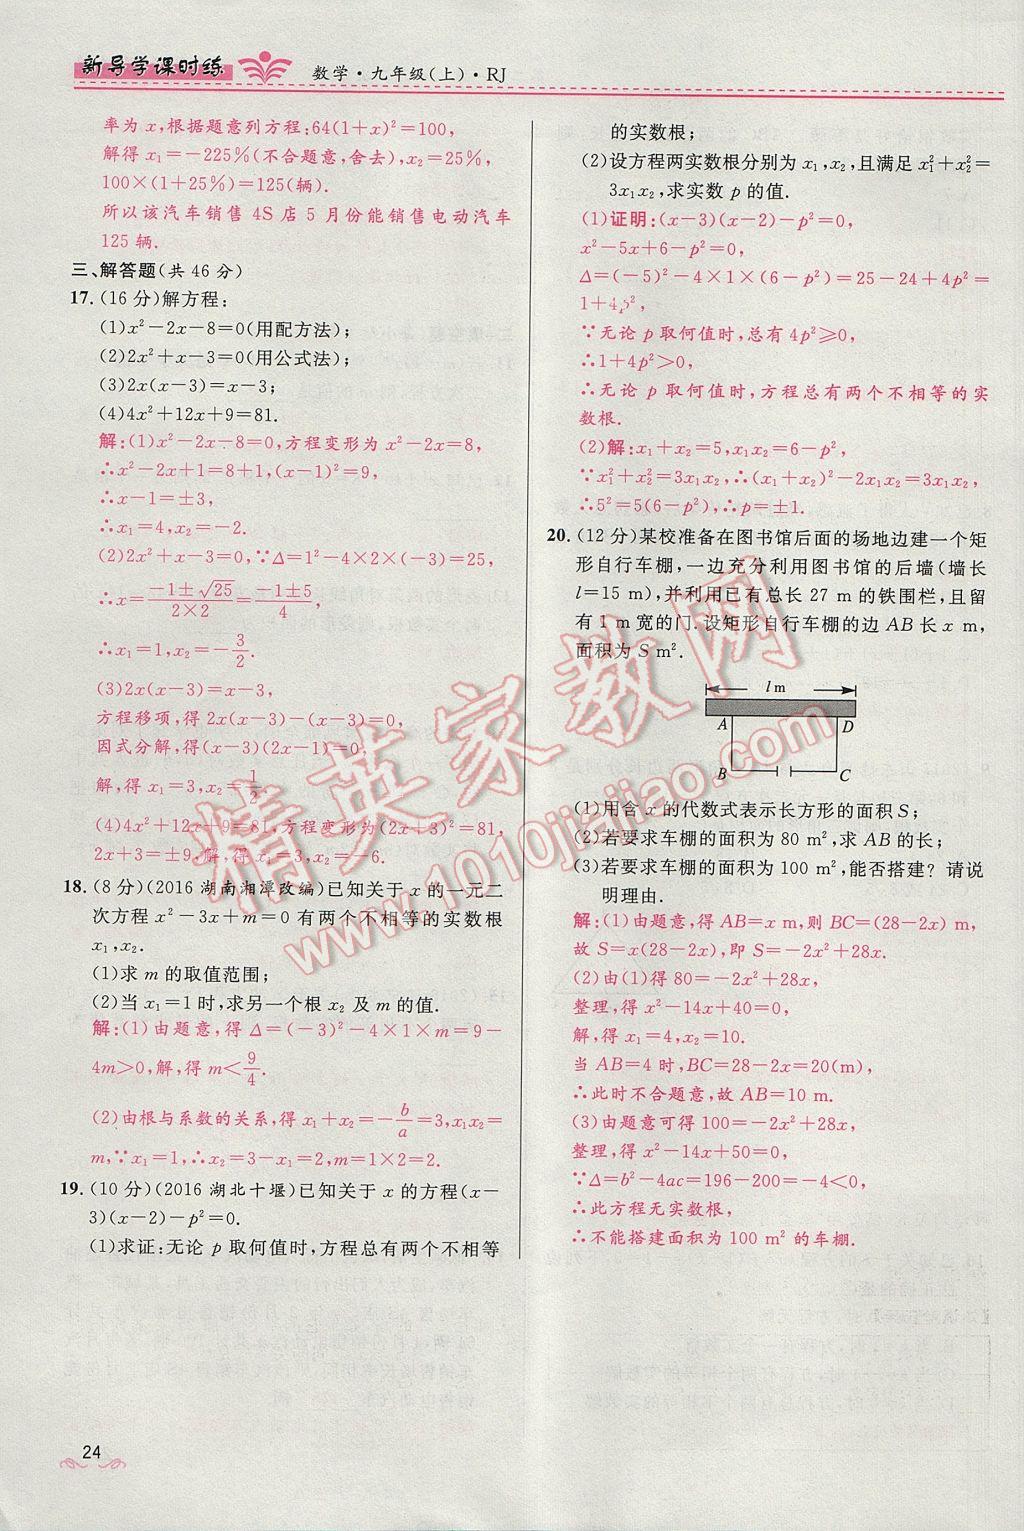 新导学课时练
数学·九年级(上)·RJ
率为 x,根据题意列方程:64(1+x)²=100,
解得 x₁=-225%(不合题意,舍去),x₂=25%,
100×(1+25%)=125(辆).
所以该汽车销售 4S 店 5 月份能销售电动汽车
125 辆.
三、解答题(共 46 分)
17.(16 分)解方程:
(1)x²-2x-8=0(用配方法);
(2)2x²+x-3=0(用公式法);
(3)2x(x-3)=x-3;
(4)4x²+12x+9=81.
解:(1)x²-2x-8=0,方程变形为 x²-2x=8,
∴x²-2x+1=8+1,(x-1)²=9,
∴x-1=±3,
∴x₁=4,x₂=-2.
(2)2x²+x-3=0,∵Δ=1²-4×2×(-3)=25,
∴x=(-1±√25)/(2×2)=(-1±5)/4,
∴x₁=1,x₂=-3/2.
(3)2x(x-3)=x-3,
方程移项,得 2x(x-3)-(x-3)=0,
因式分解,得(x-3)(2x-1)=0,
解,得 x₁=3,x₂=1/2.
(4)4x²+12x+9=81,方程变形为(2x+3)²=81,
2x+3=±9.解,得 x₁=3,x₂=-6.
18.(8 分)(2016 湖南湘潭改编)已知关于 x 的一元二
次方程 x²-3x+m=0 有两个不相等的实数根
x₁,x₂.
(1)求 m 的取值范围;
(2)当 x₁=1 时,求另一个根 x₂ 及 m 的值.
解:(1)由题意,得 Δ=(-3)²-4×1×m=9-
4m>0,解,得 m<9/4.
(2)由根与系数的关系,得 x₁+x₂=-b/a=3,x₁x₂=
m,∵x₁=1,∴x₂=3-x₁=2,m=x₁x₂=2.
19.(10 分)(2016 湖北十堰)已知关于 x 的方程(x-
3)(x-2)-p²=0.
(1)求证:无论 p 取何值时,方程总有两个不相等
的实数根;
(2)设方程两实数根分别为 x₁,x₂,且满足 x₁²+x₂²=
3x₁x₂,求实数 p 的值.
(1)证明:(x-3)(x-2)-p²=0,
x²-5x+6-p²=0,
Δ=(-5)²-4×1×(6-p²)=25-24+4p²=
1+4p².
∵无论 p 取何值时,总有 4p²≥0,
∴1+4p²>0,
∴无论 p 取何值时,方程总有两个不相等的实
数根.
(2)解:x₁+x₂=5,x₁x₂=6-p²,
∵x₁²+x₂²=3x₁x₂,∴(x₁+x₂)²-2x₁x₂=3x₁x₂,
∴5²=5(6-p²),∴p=±1.
20.(12 分)某校准备在图书馆后面的场地边建一个矩
形自行车棚,一边充分利用图书馆的后墙(墙长
l=15 m),并利用已有总长 27 m 的铁围栏,且留
有 1 m 宽的门.设矩形自行车棚的边 AB 长 x m,
面积为 S m².
l m
A D
B C
(1)用含 x 的代数式表示长方形的面积 S;
(2)若要求车棚的面积为 80 m²,求 AB 的长;
(3)若要求车棚的面积为 100 m²,能否搭建?请说
明理由.
解:(1)由题意,得 AB=x m,则 BC=(28-2x) m,
故 S=x(28-2x),即 S=-2x²+28x.
(2)由(1)得 80=-2x²+28x,
整理,得 x²-14x+40=0,
解,得 x₁=4,x₂=10.
当 AB=4 时,BC=28-2x=20(m),
∴此时不合题意,故 AB=10 m.
(3)由题意可得 100=-2x²+28x,
整理,得 x²-14x+50=0,
∵Δ=b²-4ac=196-200=-4<0,
∴此方程无实数根,
∴不能搭建面积为 100 m² 的车棚.
精英家教网
www.1010jiajiao.com
24